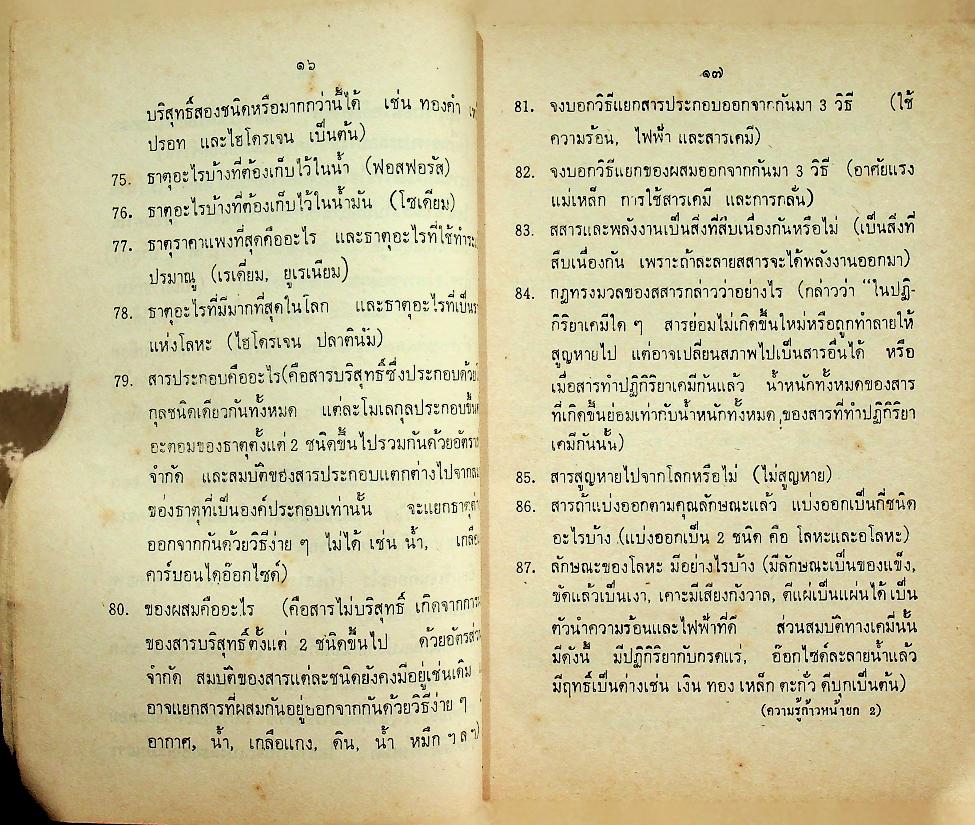 ๑๖
บริสุทธิ์สองชนิดหรือมากกว่านี้ได้ เช่น ทองคำ
ปรอท และไฮโดรเจน เป็นต้น)
75. ธาตุอะไรบ้างที่ต้องเก็บไว้ในน้ำ (ฟอสฟอรัส)
76. ธาตุอะไรบ้างที่ต้องเก็บไว้ในน้ำมัน (โซเดียม)
77. ธาตุราคาแพงที่สุดคืออะไร และธาตุอะไรที่ใช้ทำระ
ปรมาณู (เรเดี่ยม, ยูเรเนียม)
78. ธาตุอะไรที่มีมากที่สุดในโลก และธาตุอะไรที่เป็น
แห่งโลหะ (ไฮโดรเจน ปลาตินั่ม)
79. สารประกอบคืออะไร(คือสารบริสุทธิ์ซึ่งประกอบด้วย
กุลชนิดเดียวกันทั้งหมด แต่ละโมเลกุลประกอบขึ้น
อะตอมของธาตุตั้งแต่ 2 ชนิดขึ้นไปรวมกันด้วยอัตรา
จำกัด และสมบัติของสารประกอบแตกต่างไปจาก
ของธาตุที่เป็นองค์ประกอบเท่านั้น จะแยกธาตุ
ออกจากกันด้วยวิธีง่าย ๆ ไม่ได้ เช่น น้ำ, เกลือ
คาร์บอนไดอ๊อกไซด์)
80. ของผสมคืออะไร (คือสารไม่บริสุทธิ์ เกิดจากการ
ของสารบริสุทธิ์ตั้งแต่ 2 ชนิดขึ้นไป ด้วยอัตรส่ว
จำกัด สมบัติของสารแต่ละชนิดยังคงมีอยู่เช่นเดิม
อาจแยกสารที่ผสมกันอยู่ออกจากกันด้วยวิธีง่าย ๆ
อากาศ, น้ำ, เกลือแกง, ดิน, น้ำ หมึก ฯลฯ)
๑๗
81. จงบอกวิธีแยกสารประกอบออกจากกันมา 3 วิธี (ใช้
ความร้อน, ไฟฟ้า และสารเคมี)
82. จงบอกวิธีแยกของผสมออกจากกันมา 3 วิธี (อาศัยแรง
แม่เหล็ก การใช้สารเคมี และการกลั่น)
83. สสารและพลังงานเป็นสิ่งที่สืบเนื่องกันหรือไม่ (เป็นสิ่งที่
สืบเนื่องกัน เพราะถ้าละลายสสารจะได้พลังงานออกมา)
84. กฎทรงมวลของสสารกล่าวว่าอย่างไร (กล่าวว่า “ในปฏิ-
กิริยาเคมีใด ๆ สารย่อมไม่เกิดขึ้นใหม่หรือถูกทำลายให้
สูญหายไป แต่อาจเปลี่ยนสภาพไปเป็นสารอื่นได้ หรือ
เมื่อสารทำปฏิกิริยาเคมีกันแล้ว น้ำหนักทั้งหมดของสาร
ที่เกิดขึ้นย่อมเท่ากับน้ำหนักทั้งหมด ของสารที่ทำปฏิกิริยา
เคมีกันนั้น)
85. สารสูญหายไปจากโลกหรือไม่ (ไม่สูญหาย)
86. สารถ้าแบ่งออกตามคุณลักษณะแล้ว แบ่งออกเป็นกี่ชนิด
อะไรบ้าง (แบ่งออกเป็น 2 ชนิด คือ โลหะและอโลหะ)
87. ลักษณะของโลหะ มีอย่างไรบ้าง (มีลักษณะเป็นของแข็ง,
ขัดแล้วเป็นเงา, เคาะมีเสียงกังวาล, ตีแผ่เป็นแผ่นได้ เป็น
ตัวนำความร้อนและไฟฟ้าที่ดี ส่วนสมบัติทางเคมีนั้น
มีดังนี้ มีปฏิกิริยากับกรดแร่, อ๊อกไซด์ละลายน้ำแล้ว
มีฤทธิ์เป็นด่างเช่น เงิน ทอง เหล็ก ตะกั่ว ดีบุกเป็นต้น)
(ความรู้ก้าวหน้ายก 2)